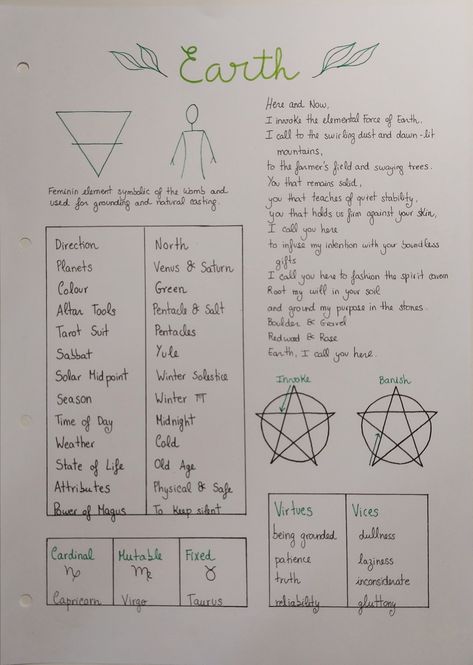 Earth
Feminin element symbolic of the Womb and
used for grounding and natural casting.
Here and Now,
I invoke the elemental Force of Earth,
I call to the swirling dust and dawn-lit
mountains,
to the farmer's field and swaying trees.
You that remains solid,
you that teaches of quiet stability,
you that holds us firm against your skin,
I call you here
to infuse my intention with your boundless
gifts
I call you here to fashion the spirit cavern
Root my will in your soil
and ground my purpose in the stones.
Boulder & Gravel
Redwood & Rose
Earth, I call you here.
Direction North
Planets Venus & Saturn
Colour Green
Altar Tools Pentacle & Salt
Tarot Suit Pentacles
Sabbat Yule
Solar Midpoint Winter Solestice
Season Winter
Time of Day Midnight
Weather Cold
State of Life Old Age
Attributes Physical & Safe
Power of Magus To Keep silent
Invoke Banish
Cardinal Mutable Fixed
♑ ♍ ♉
Capricorn Virgo Taurus
Virtues Vices
being grounded dullness
patience laziness
truth inconsiderate
reliability gluttony